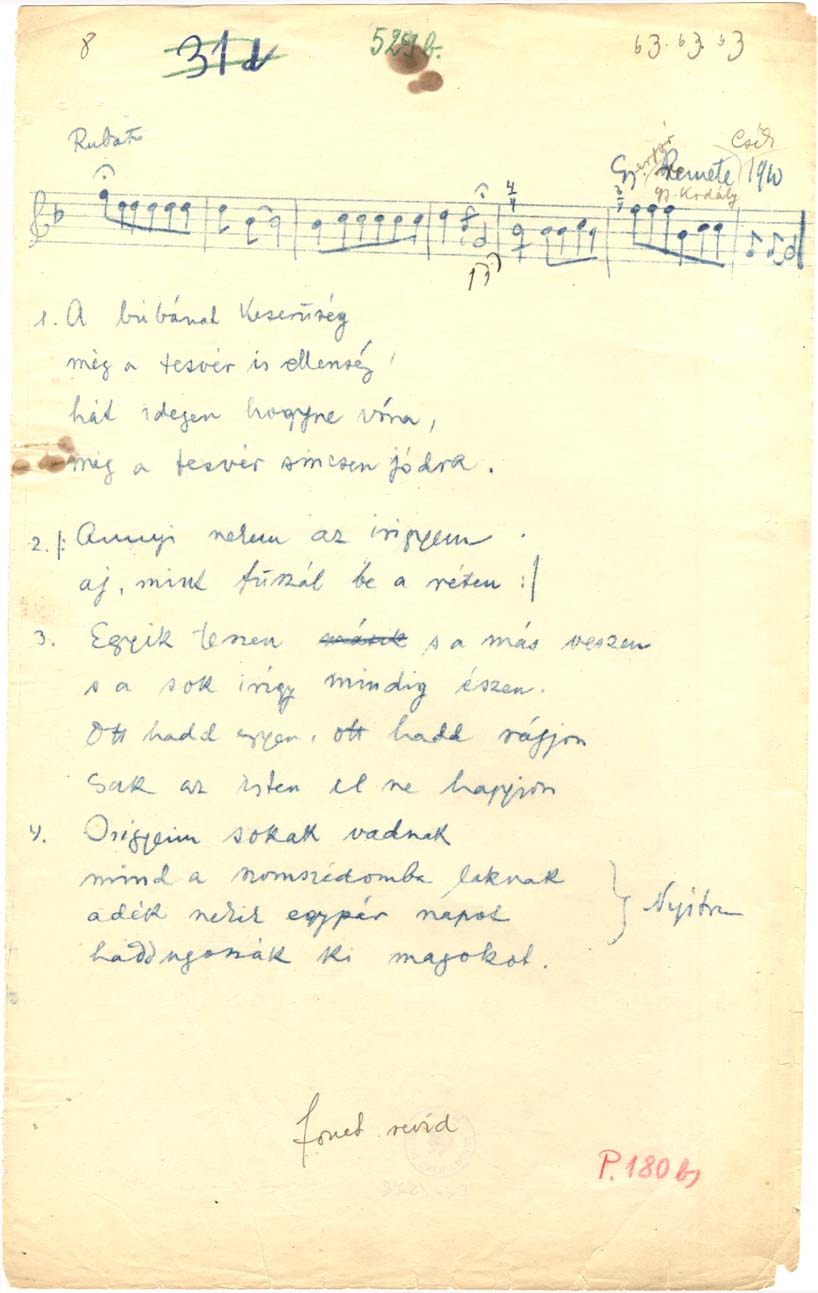 8 31d 529b. 63. 63. 53
Rubato
Csík
Gyergyó
Remete 1910
gy. Kodály
4/4
3/4
1. A búbánat keserűség
még a tesvér is ellenség,
hát idegen hogyne vóna,
még a tesvér sincsen jódra.
2. /: Annyi nekem az irigyem
aj, mint fűszál be a réten :/
3. Egyik teszen másik s a más veszen
s a sok irigy mindig észen.
Ott hadd egyen, ott hadd rágjon
Sak az Isten el ne hagyjon
4. Irigyeim sokak vadnak
mind a szomszédomba laknak
adék nekik egypár napot
haddugassák ki magokot.
Nyitra
fonet revid
P. 180 b)